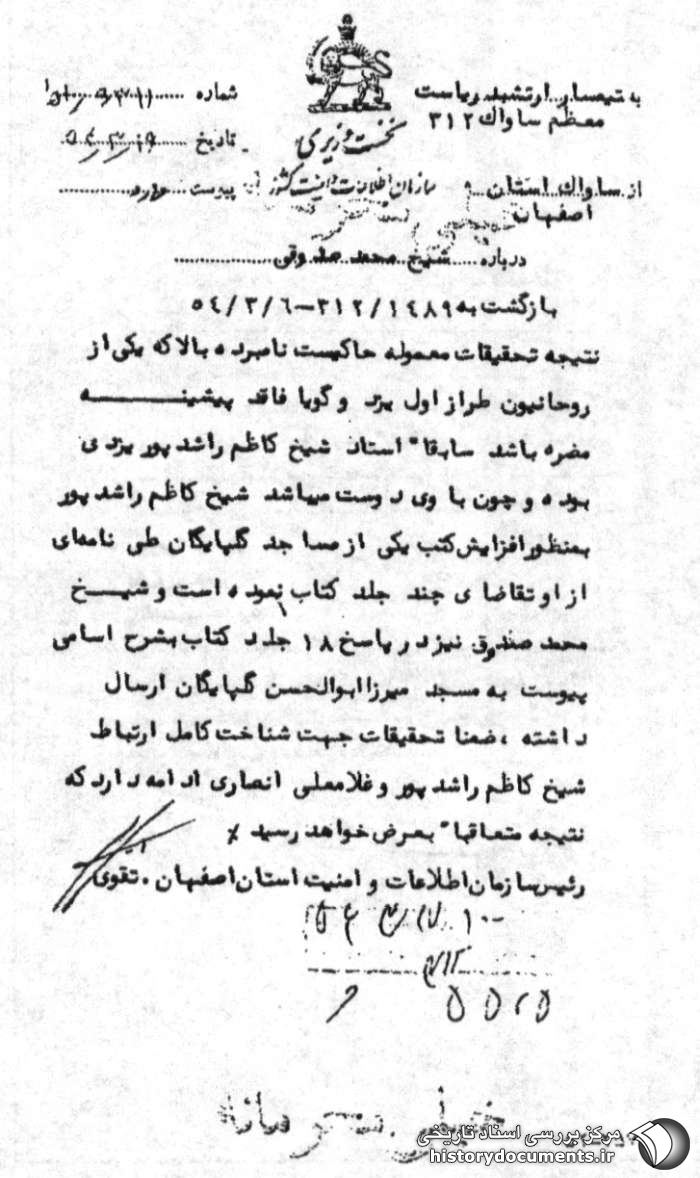 نخست وزیری
سازمان اطلاعات و امنیت کشور
به تیمسار ارتشبد ریاست
معظم ساواک ۳۱۲
از ساواک استان
اصفهان
شماره
تاریخ
پیوست دارد
درباره شیخ محمد صدوقی
بازگشت به ۳۱۲/۱۴۸۹-۵۴/۳/۶
نتیجه تحقیقات معموله حاکیست نامبرده بالا که یکی از
روحانیون طراز اول یزد و گویا فاقد پیشینه
مضره باشد سابقا" استاد شیخ کاظم راشد پور یزدی
بوده و چون با وی دوست میباشد شیخ کاظم راشد پور
بمنظور افزایش کتب یکی از مساجد گلپایگان طی نامه‌ای
از او تقاضای چند جلد کتاب نموده است و شیخ
محمد صدوق نیز در پاسخ ۱۸ جلد کتاب بشرح اسامی
پیوست به مسجد میرزا ابوالحسن گلپایگان ارسال
داشته ، ضمنا تحقیقات جهت شناخت کامل ارتباط
شیخ کاظم راشد پور و غلامعلی انصاری ادامه دارد که
نتیجه متعاقبا" بعرض خواهد رسید ٪
رئیس سازمان اطلاعات و امنیت استان اصفهان . تقوی
خیلی محرمانه
مرکز بررسی اسناد تاریخی
historydocuments.ir